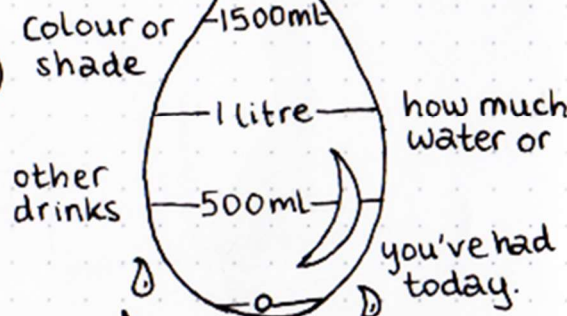 1500ml
Colour or
shade
1 litre
how much
water or
other
drinks
500ml
you've had
today.
0